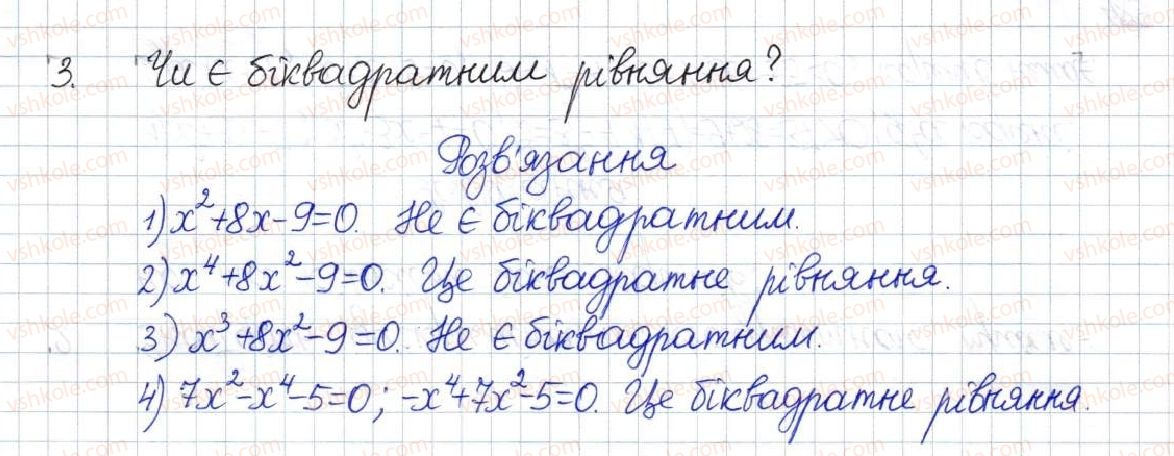 3. Чи є біквадратним рівняння?
Розв'язання
1) x²+8x-9=0. Не є біквадратним.
2) x⁴+8x²-9=0. Це біквадратне рівняння.
3) x³+8x²-9=0. Не є біквадратним.
4) 7x²-x⁴-5=0; -x⁴+7x²-5=0. Це біквадратне рівняння.